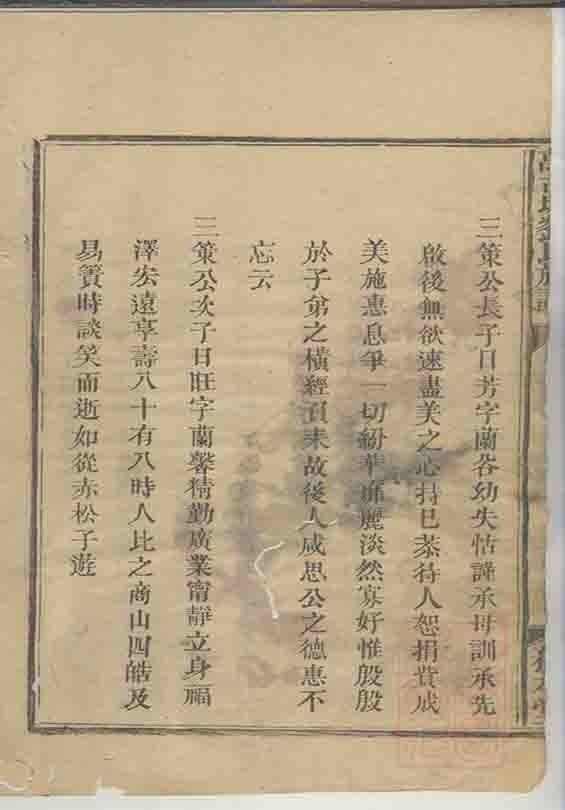 三策公長子日芳字蘭谷幼失怙謹承母訓承先
啟後無欲速盡美之心持已恭待人恕捐貲成
美施惠息爭一切紛華靡麗淡然寡好惟殷殷
於子弟之橫經負耒故後人咸思公之德惠不
忘云
三策公次子日旺字蘭馨精勤廣業甯靜立身福
澤宏遠享壽八十有八時人比之商山四皓及
易簀時談笑而逝如從赤松子遊